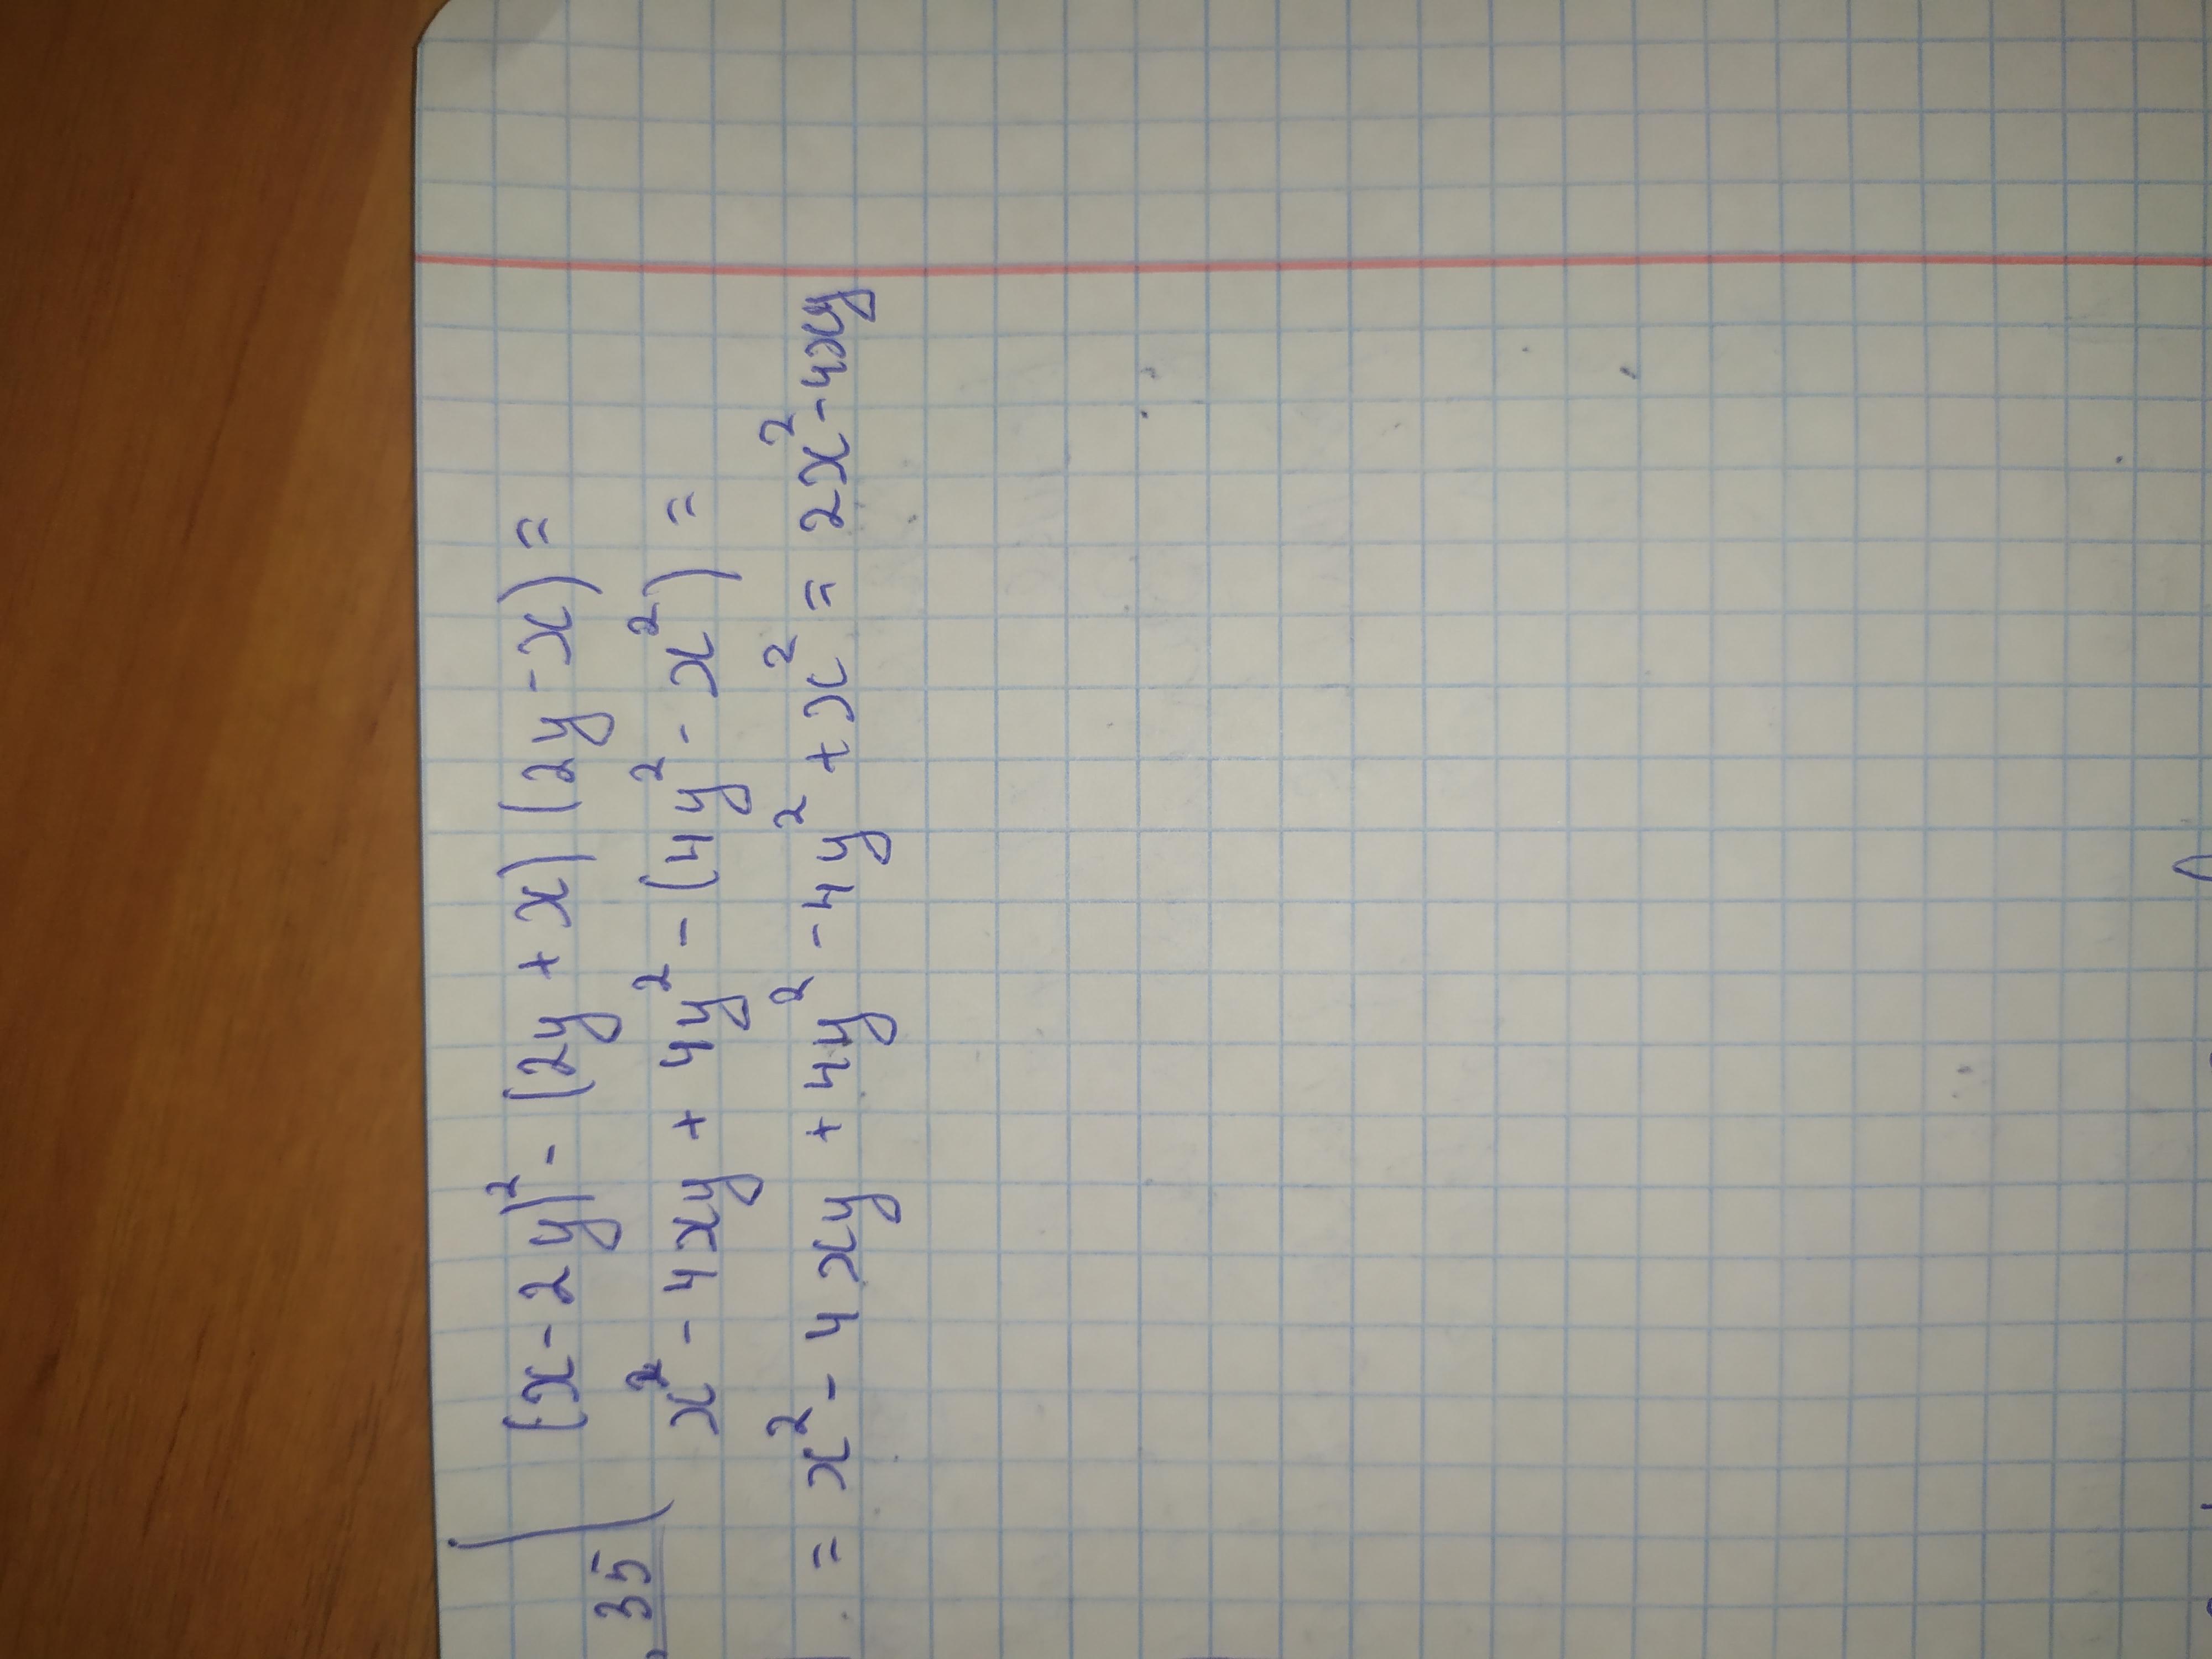 35
(x-2y)² - (2y+x)(2y-x) =
x² - 4xy + 4y² - (4y² - x²) =
= x² - 4xy + 4y² - 4y² + x² = 2x² - 4xy